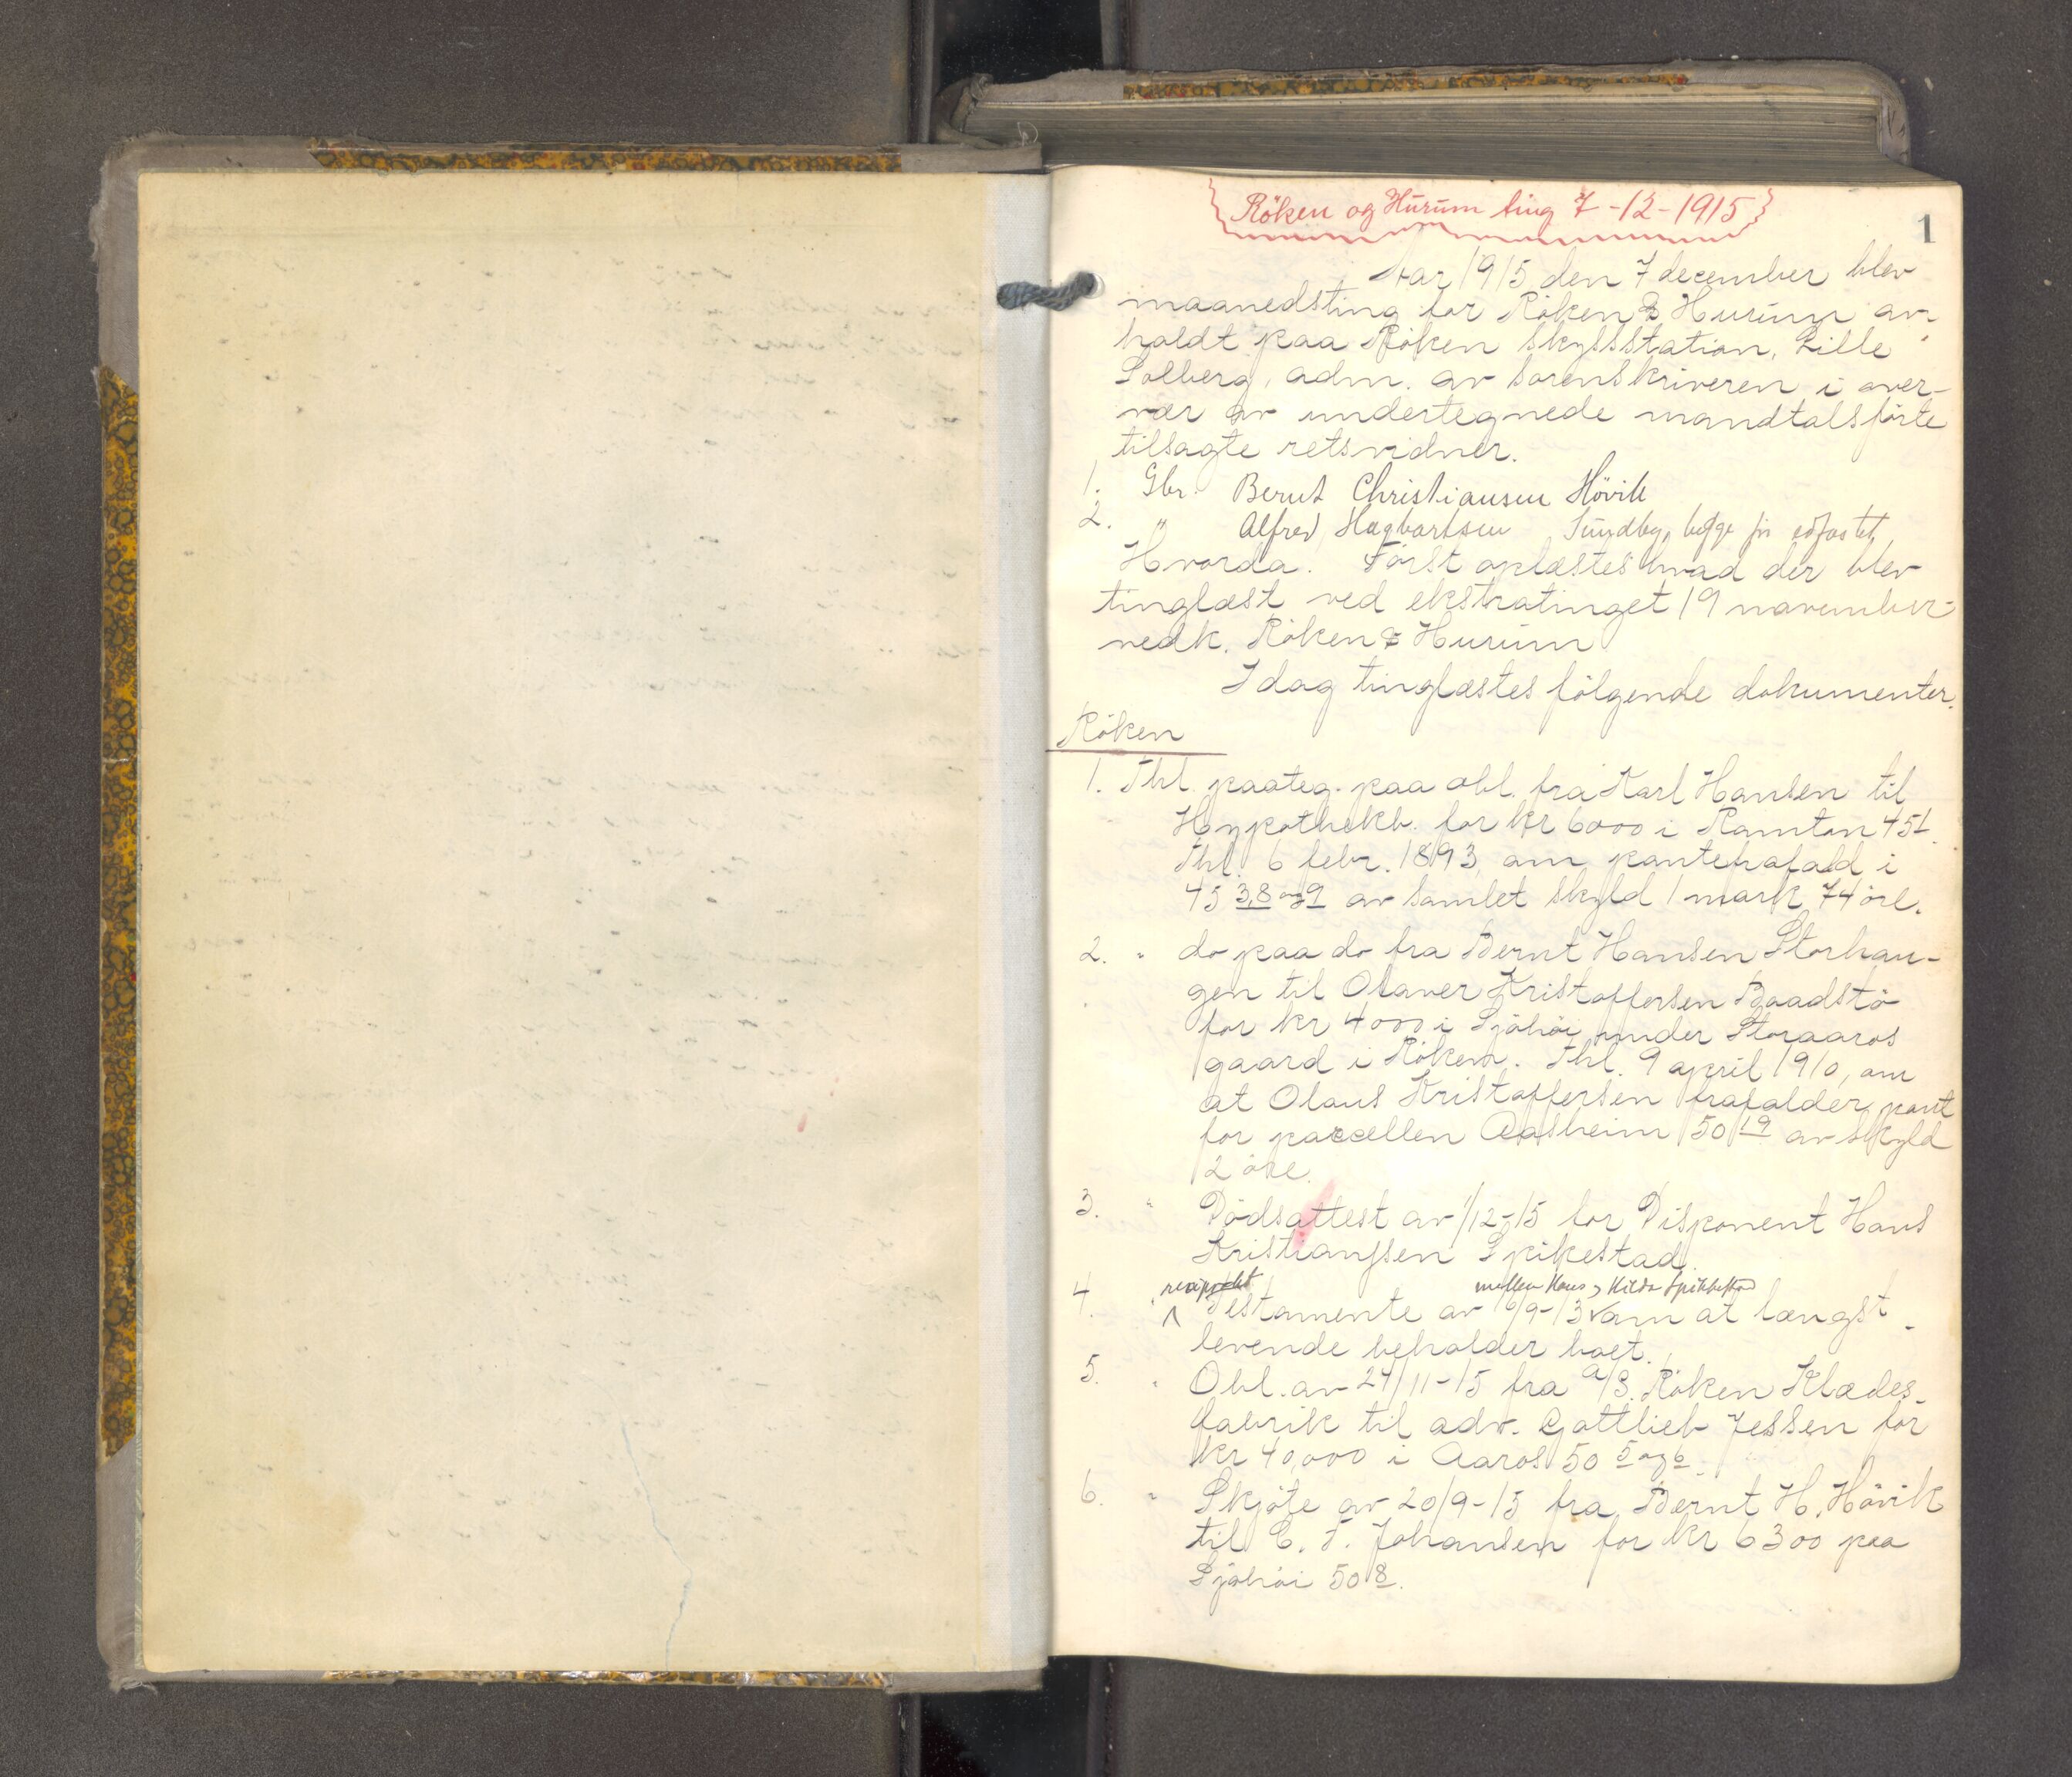 Röken og Hurum ting 7-12-1915
1
Aar 1915 den 7 december blev
maanedsting for Röken & Hurum av-
holdt paa Röken skydsstation, Lille
Solberg, adm. av sorenskriveren i over-
vær av undertegnede mandtalsførte
tilsagte retsvidner.
1. Gbr. Bernt Christiansen Hövik
2. " Alfred Hagbartsen Sundby, begge før edfæstet
Hvorda. Først oplæstes hvad der blev
tinglæst ved ekstratinget 19 november
vedk. Röken & Hurum
Idag tinglæstes følgende dokumenter.
Röken
1. Thl. paateg. paa obl. fra Karl Hansen til
Hypothekb. for kr 6000 i Ramton 45 1.
Thl. 6 febr. 1893, om pantefrafald i
45 3,8 og 9 av samlet skyld 1 mark 74 öre.
2. " do paa do fra Bernt Hansen Storhau-
gen til Olaver Kristoffersen Baadstö
for kr 4000 i Sjöhöi under Storaaros
gaard i Röken. Thl. 9 april 1910, om
at Olaus Kristoffersen frafalder pant
for parcellen Aasheim 50 19 av skyld
2 öre.
3. " Dödsattest av 1/12-15 for Disponent Hans
Kristianssen Spikestad.
reciprokt mellem Hans & Hilda Spikkestad
4. " Testamente av 16/9-13 om at længst
levende beholder boet.
5. " Obl. av 24/11-15 fra A/S. Röken Klædes-
fabrik til adv. Gottlieb Jessen for
kr 40,000 i Aaros 50 5 og 6.
6. " Skjöte av 20/9-15 fra Bernt H. Hövik
til C. F. Johansen for kr 6300 paa
Sjöhöi 50 8.